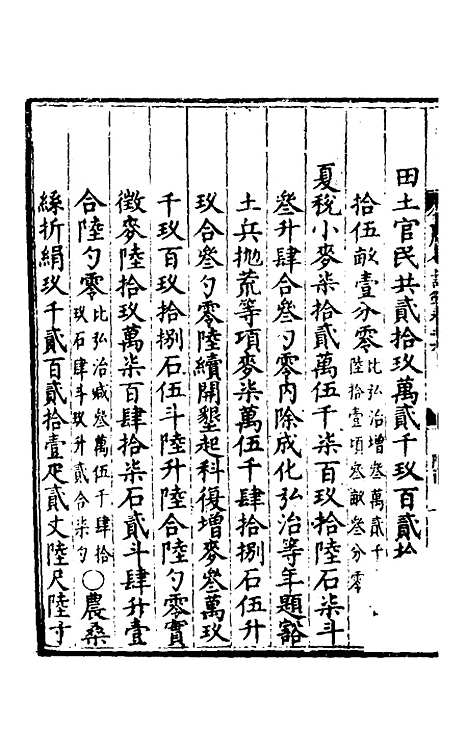 田土官民共貳拾玖萬貳千玖百貳拾
拾伍畝壹分零比弘治增叅萬貳千
陸拾壹項叅畝叅分零
夏稅小麥柒拾貳萬伍千柒百玖拾陸石柒斗
叅升肆合叅勺零内除成化弘治等年題豁
土兵抛荒等項麥柒萬伍千肆拾捌石伍升
玖合叅勺零陸續開墾起科復增麥叅萬玖
千玖百玖拾捌石伍斗陸升陸合陸勺零實
徵麥陸拾玖萬柒百肆拾柒石貳斗肆升壹
合陸勺零比弘治减叅萬伍千肆拾
玖石肆斗玖升貳合柒勺〇農桑
絲折絹玖千貳百貳拾壹疋貳丈陸尺陸寸